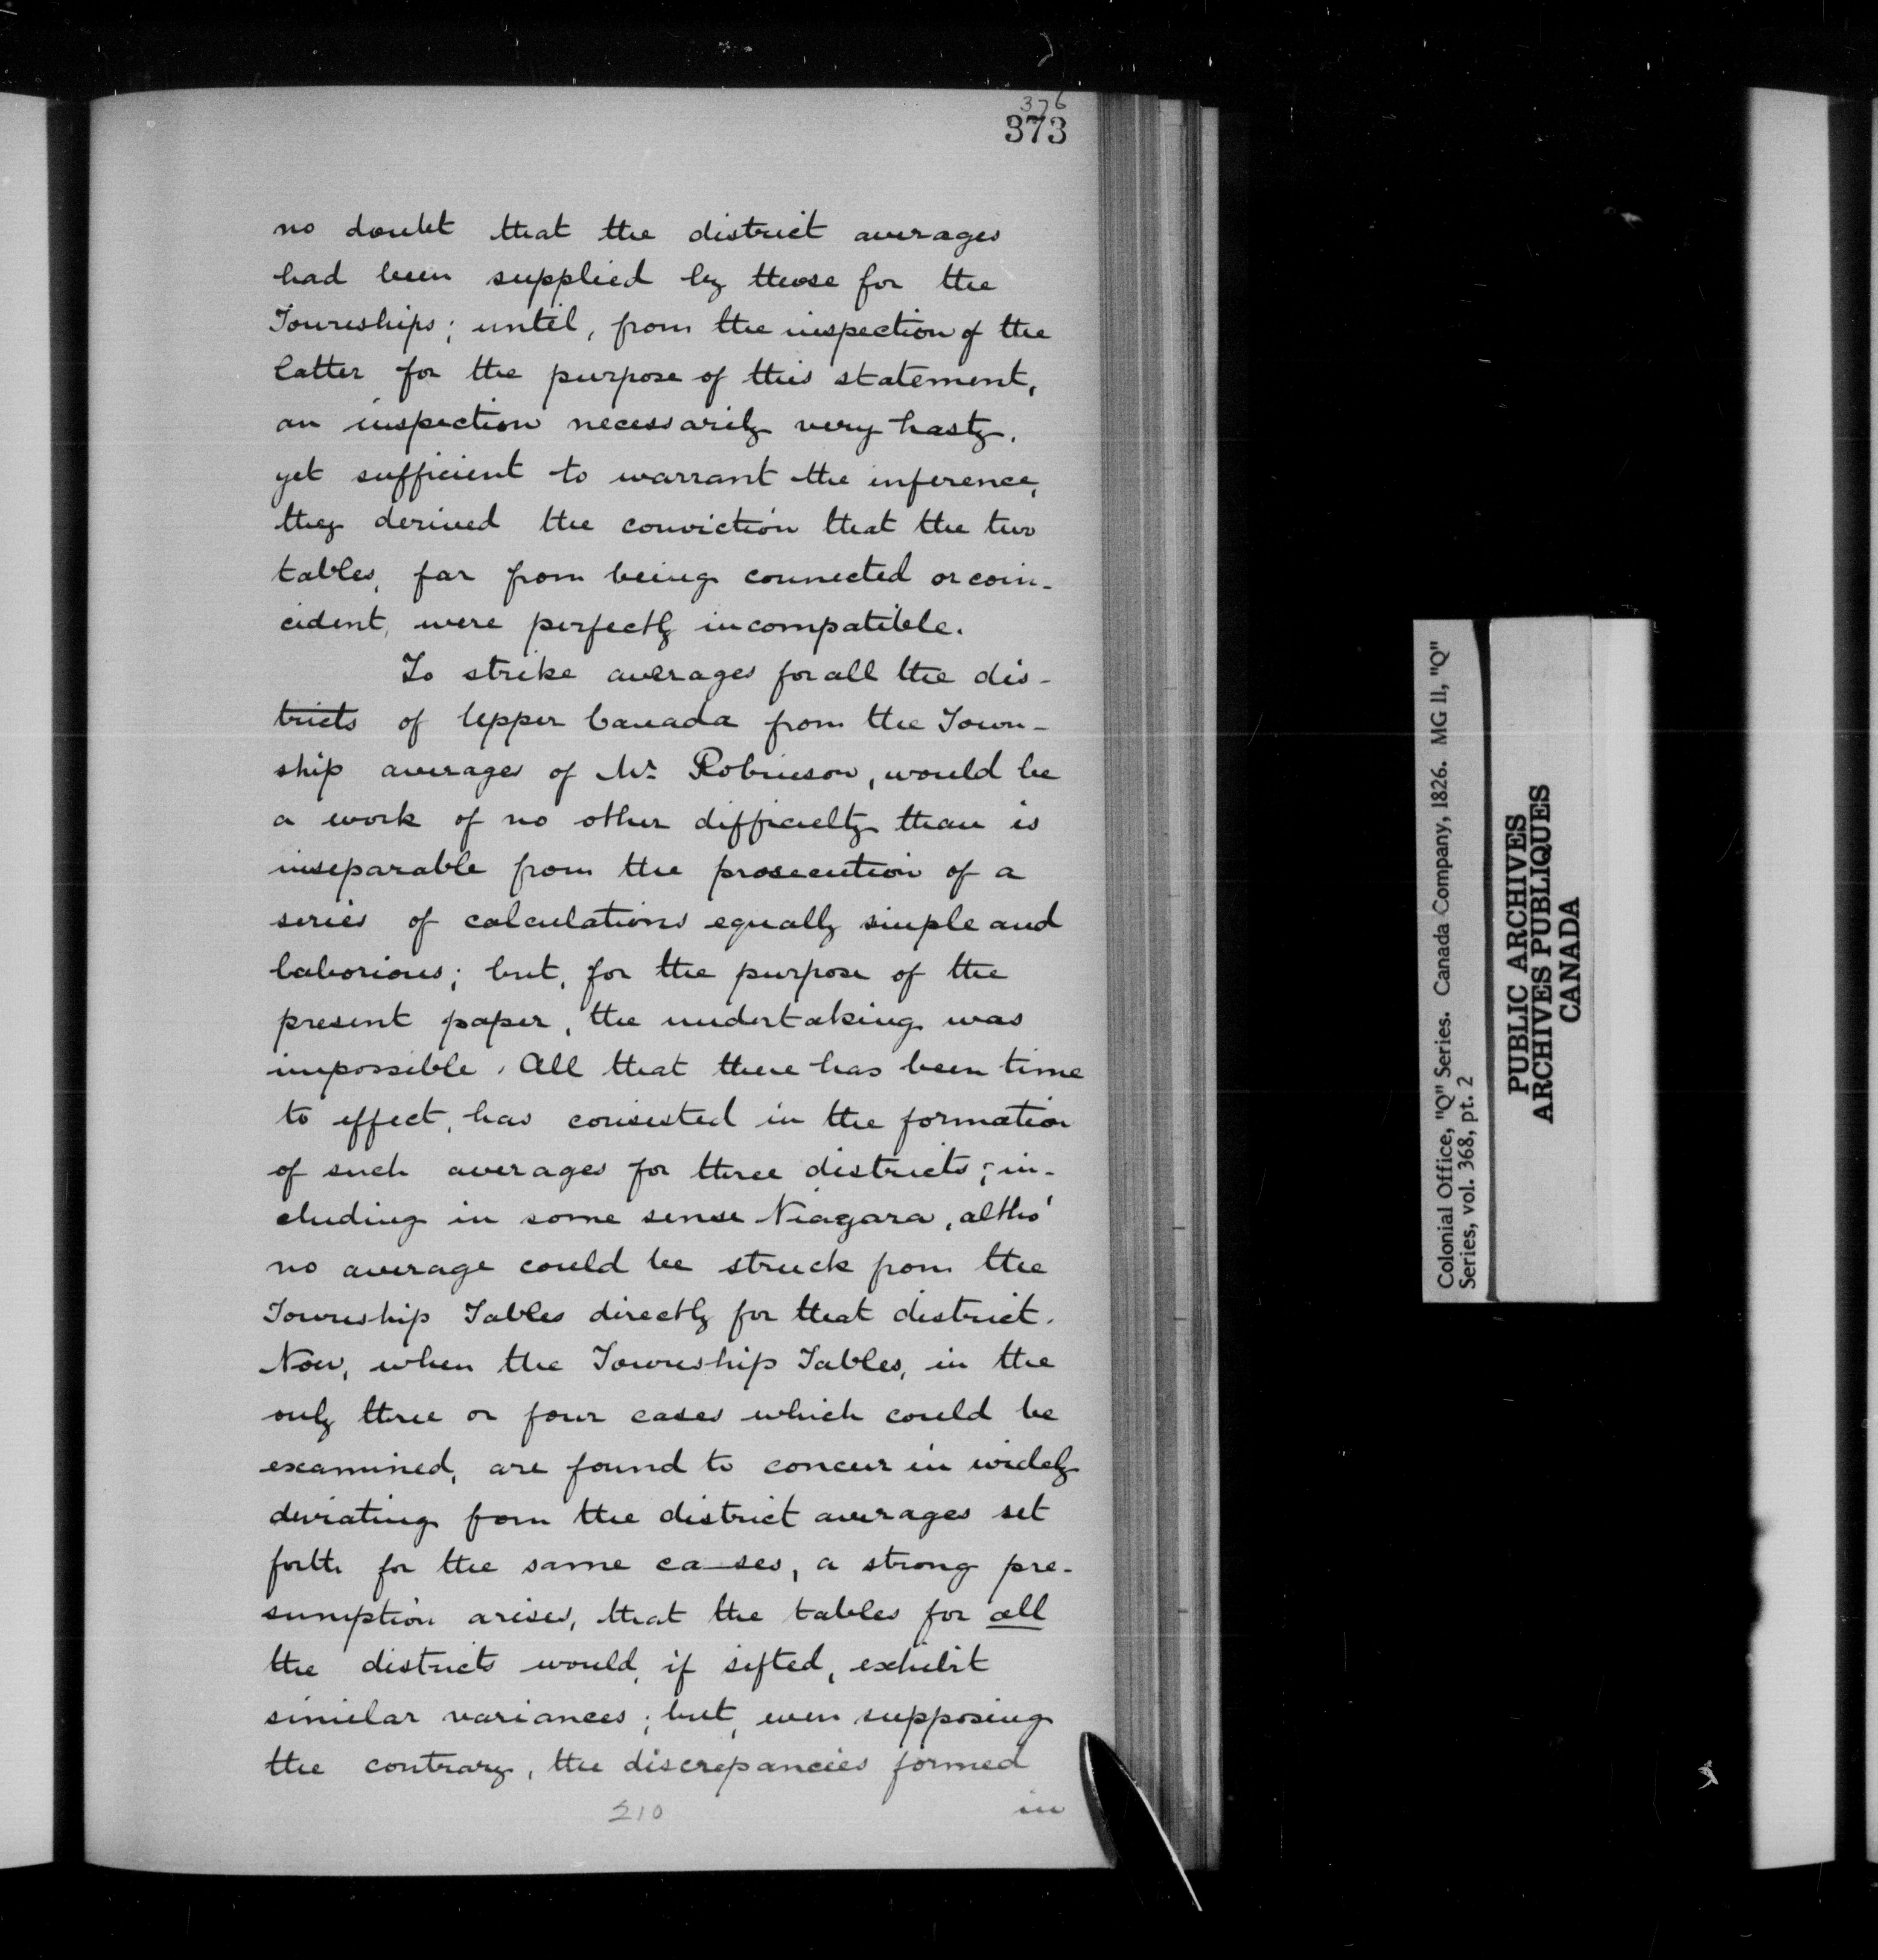 376
373
no doubt that the district averages
had been supplied by those for the
Townships; until, from the inspection of the
latter for the purpose of this statement,
an inspection necessarily very hasty,
yet sufficient to warrant the inference,
they derived the conviction that the two
tables, far from being connected or coin-
cident, were perfectly incompatible.
To strike averages for all the dis-
tricts of Upper Canada from the Town-
ship averages of Mr. Robinson, would be
a work of no other difficulty than is
inseparable from the prosecution of a
series of calculations equally simple and
laborious; but, for the purpose of the
present paper, the undertaking was
impossible. All that there has been time
to effect, has consisted in the formation
of such averages for three districts; in-
cluding in some sense Niagara, altho'
no average could be struck from the
Township Tables directly for that district.
Now, when the Township Tables, in the
only three or four cases which could be
examined, are found to concur in widely
deviating from the district averages set
forth for the same ca-ses, a strong pre-
sumption arises, that the tables for all
the districts would, if sifted, exhibit
similar variances; but, even supposing
the contrary, the discrepancies formed
in
210
Colonial Office, "Q" Series. Canada Company, 1826. MG 11, "Q"
Series, vol. 368, pt. 2
PUBLIC ARCHIVES
ARCHIVES PUBLIQUES
CANADA